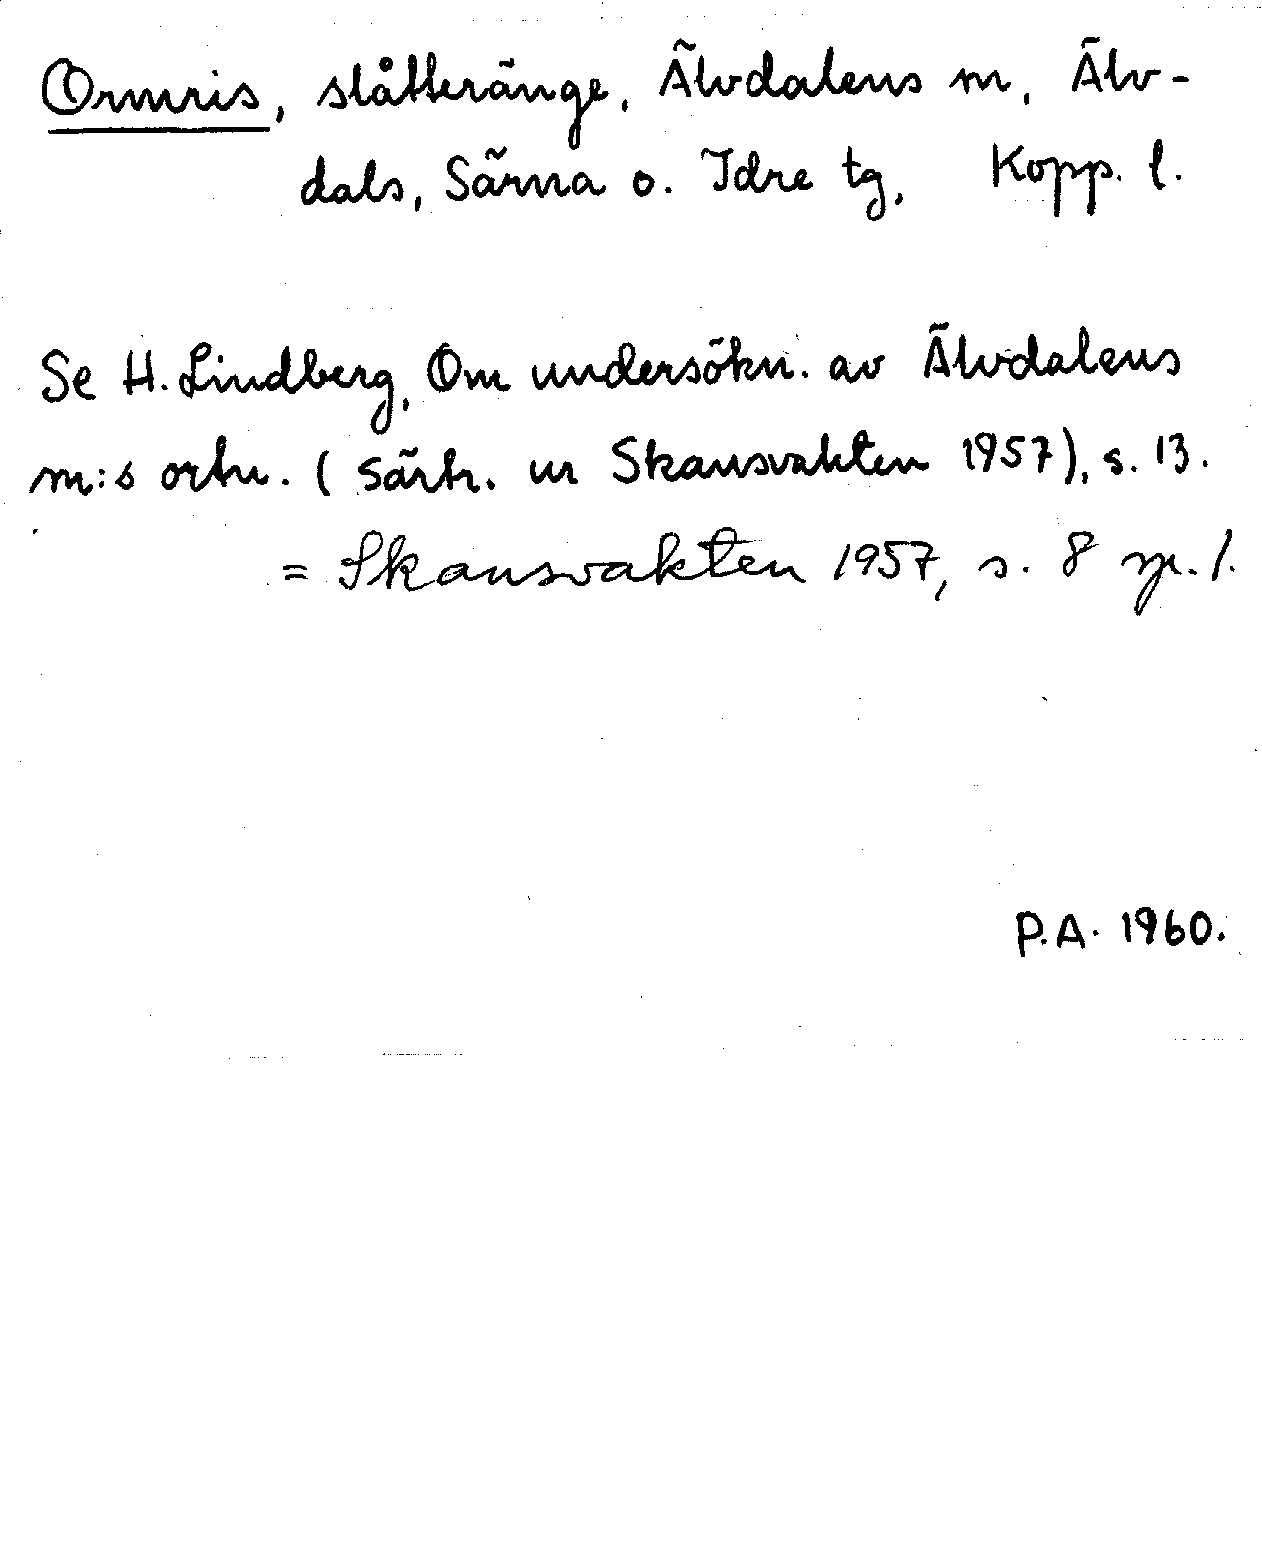 Ormris, slåtteränge, Älvdalens m, Älv-
dals, Särna o. Idre tg, Kopp. l.
Se H. Lindberg, Om undersökn. av Älvdalens
m:s ortn. (Särtr. ur Skansvakten 1957), s. 13.
= Skansvakten 1957, s. 8 sp. 1.
P.A. 1960.